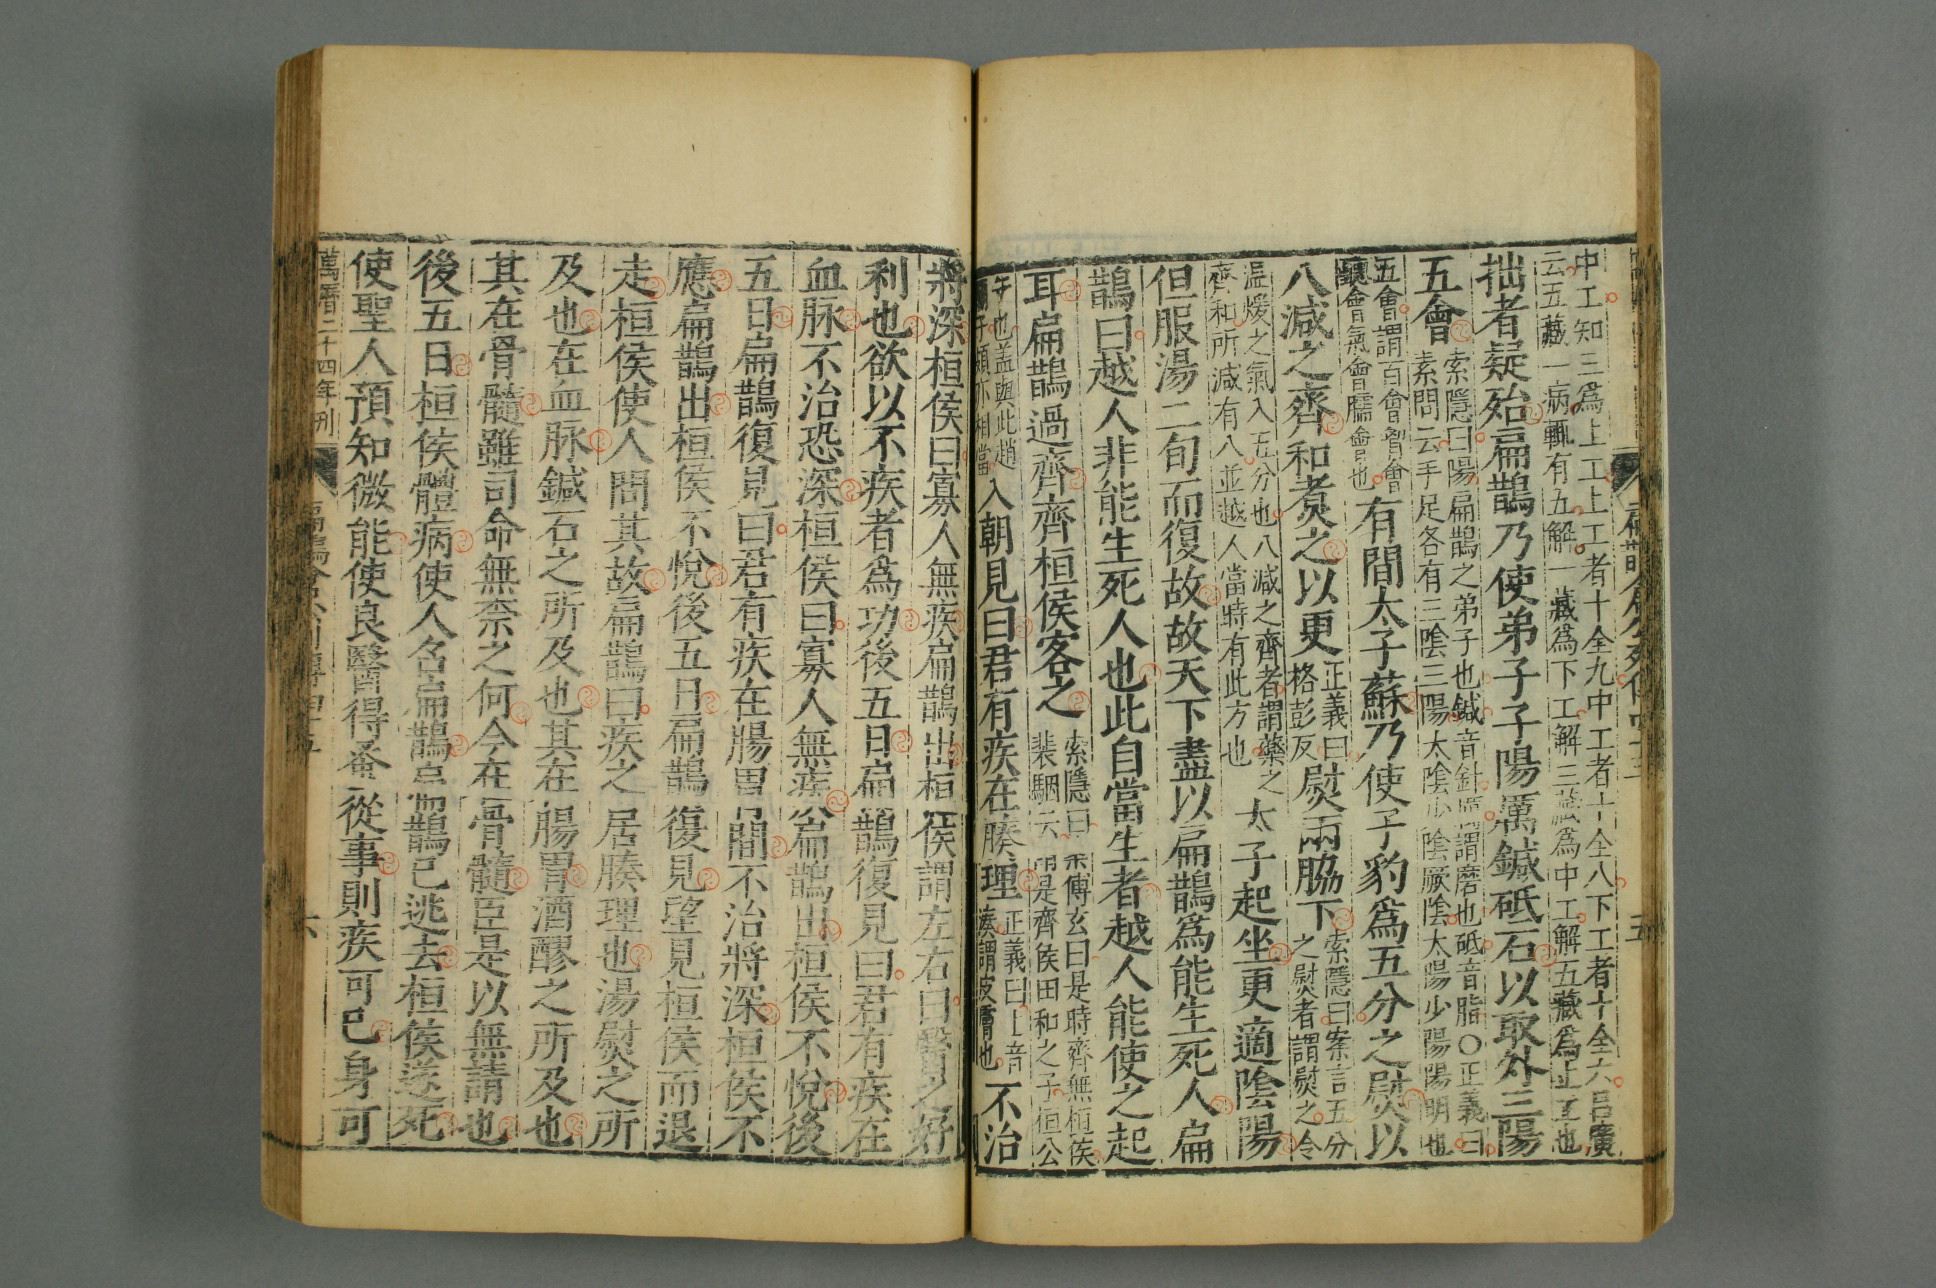 中工知三爲上工上工者十全九中工者十全八下工者十全六呂廣
云五藏一病輒有五解一藏爲下工解三藏爲中工解五藏爲上工也
拙者疑殆扁鵲乃使弟子子陽厲鍼砥石以取外三陽
五會
索隱曰陽扁鵲之弟子也鍼音針厲謂磨也砥音脂〇正義曰
素問云手足各有三陰三陽太陰少陰厥陰太陽少陽陽明也
五會謂百會胷會
聽會氣會臑會也
有間太子蘇乃使子豹爲五分之熨以
八減之齊和煮之以更
正義曰
格彭反
熨兩脇下
索隱曰案言五分
之熨者謂熨之令
温煖之氣入五分也八減之齊者謂藥之
齊和所減有八並越人當時有此方也
太子起坐更適陰陽
但服湯二旬而復故故天下盡以扁鵲爲能生死人扁
鵲曰越人非能生死人也此自當生者越人能使之起
耳扁鵲過齊齊桓侯客之
索隱曰案傅玄曰是時齊無桓侯
裴駰云謂是齊侯田和之子桓公
午也蓋與此趙
簡子頗亦相當
入朝見曰君有疾在腠理
正義曰上音
湊謂皮膚也
不治
將深桓侯曰寡人無疾扁鵲出桓侯謂左右曰醫之好
利也欲以不疾者爲功後五日扁鵲復見曰君有疾在
血脉不治恐深桓侯曰寡人無疾扁鵲出桓侯不悅後
五日扁鵲復見曰君有疾在腸胃間不治將深桓侯不
應扁鵲出桓侯不悅後五日扁鵲復見望見桓侯而退
走桓侯使人問其故扁鵲曰疾之居腠理也湯熨之所
及也在血脉鍼石之所及也其在腸胃酒醪之所及也
其在骨髓雖司命無奈之何今在骨髓臣是以無請也
後五日桓侯體病使人召扁鵲扁鵲已逃去桓侯遂死
使聖人預知微能使良醫得蚤從事則疾可已身可
萬曆二十四年刊
六